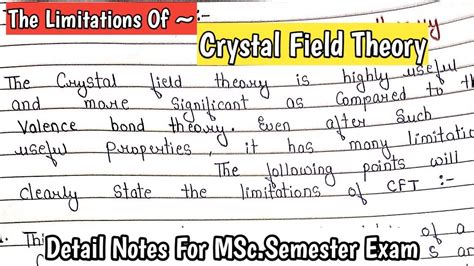 The Limitations Of ~ :-
Crystal Field Theory
The Crystal field theory is highly useful
and more significant as compared to th
Valence bond theory. Even after such
useful properties, it has many limitatio
The following points will
clearly state the limitations of CFT :-
of a
Detail Notes For MSc.Semester Exam